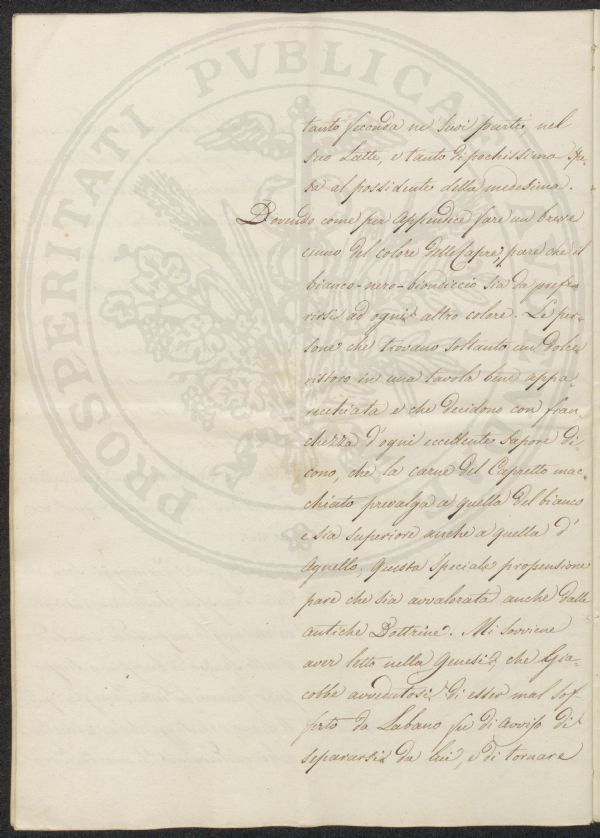 PROSPERITATI PVBLICAE
tanto feconda ne' suoi parti, nel
suo Latte, e tanto di pochissima spe-
sa al possidente della medesima.
Dovendo come per appendice fare un breve
cenno del colore delle Capre, pare che il
bianco-nero-biondiccio sia da prefe-
rirsi ad ogni altro colore. Le per-
sone che trovano soltanto un dolce
ristoro in una tavola bene appa-
recchiata e che decidono con fran-
chezza d'ogni eccellente sapore di-
cono, che la carne del Capretto mac-
chiato prevalga a quella del bianco
e sia superiore anche a quella d'
Agnello, questa speciale propensione
pare che sia avvalorata anche dalle
antiche Dottrine. Mi sovviene
aver letto nella Genesi, che Gia-
cobbe avvedutosi di esser mal sof-
ferto da Labano fu di avviso di
separarsi da lui, e di tornare